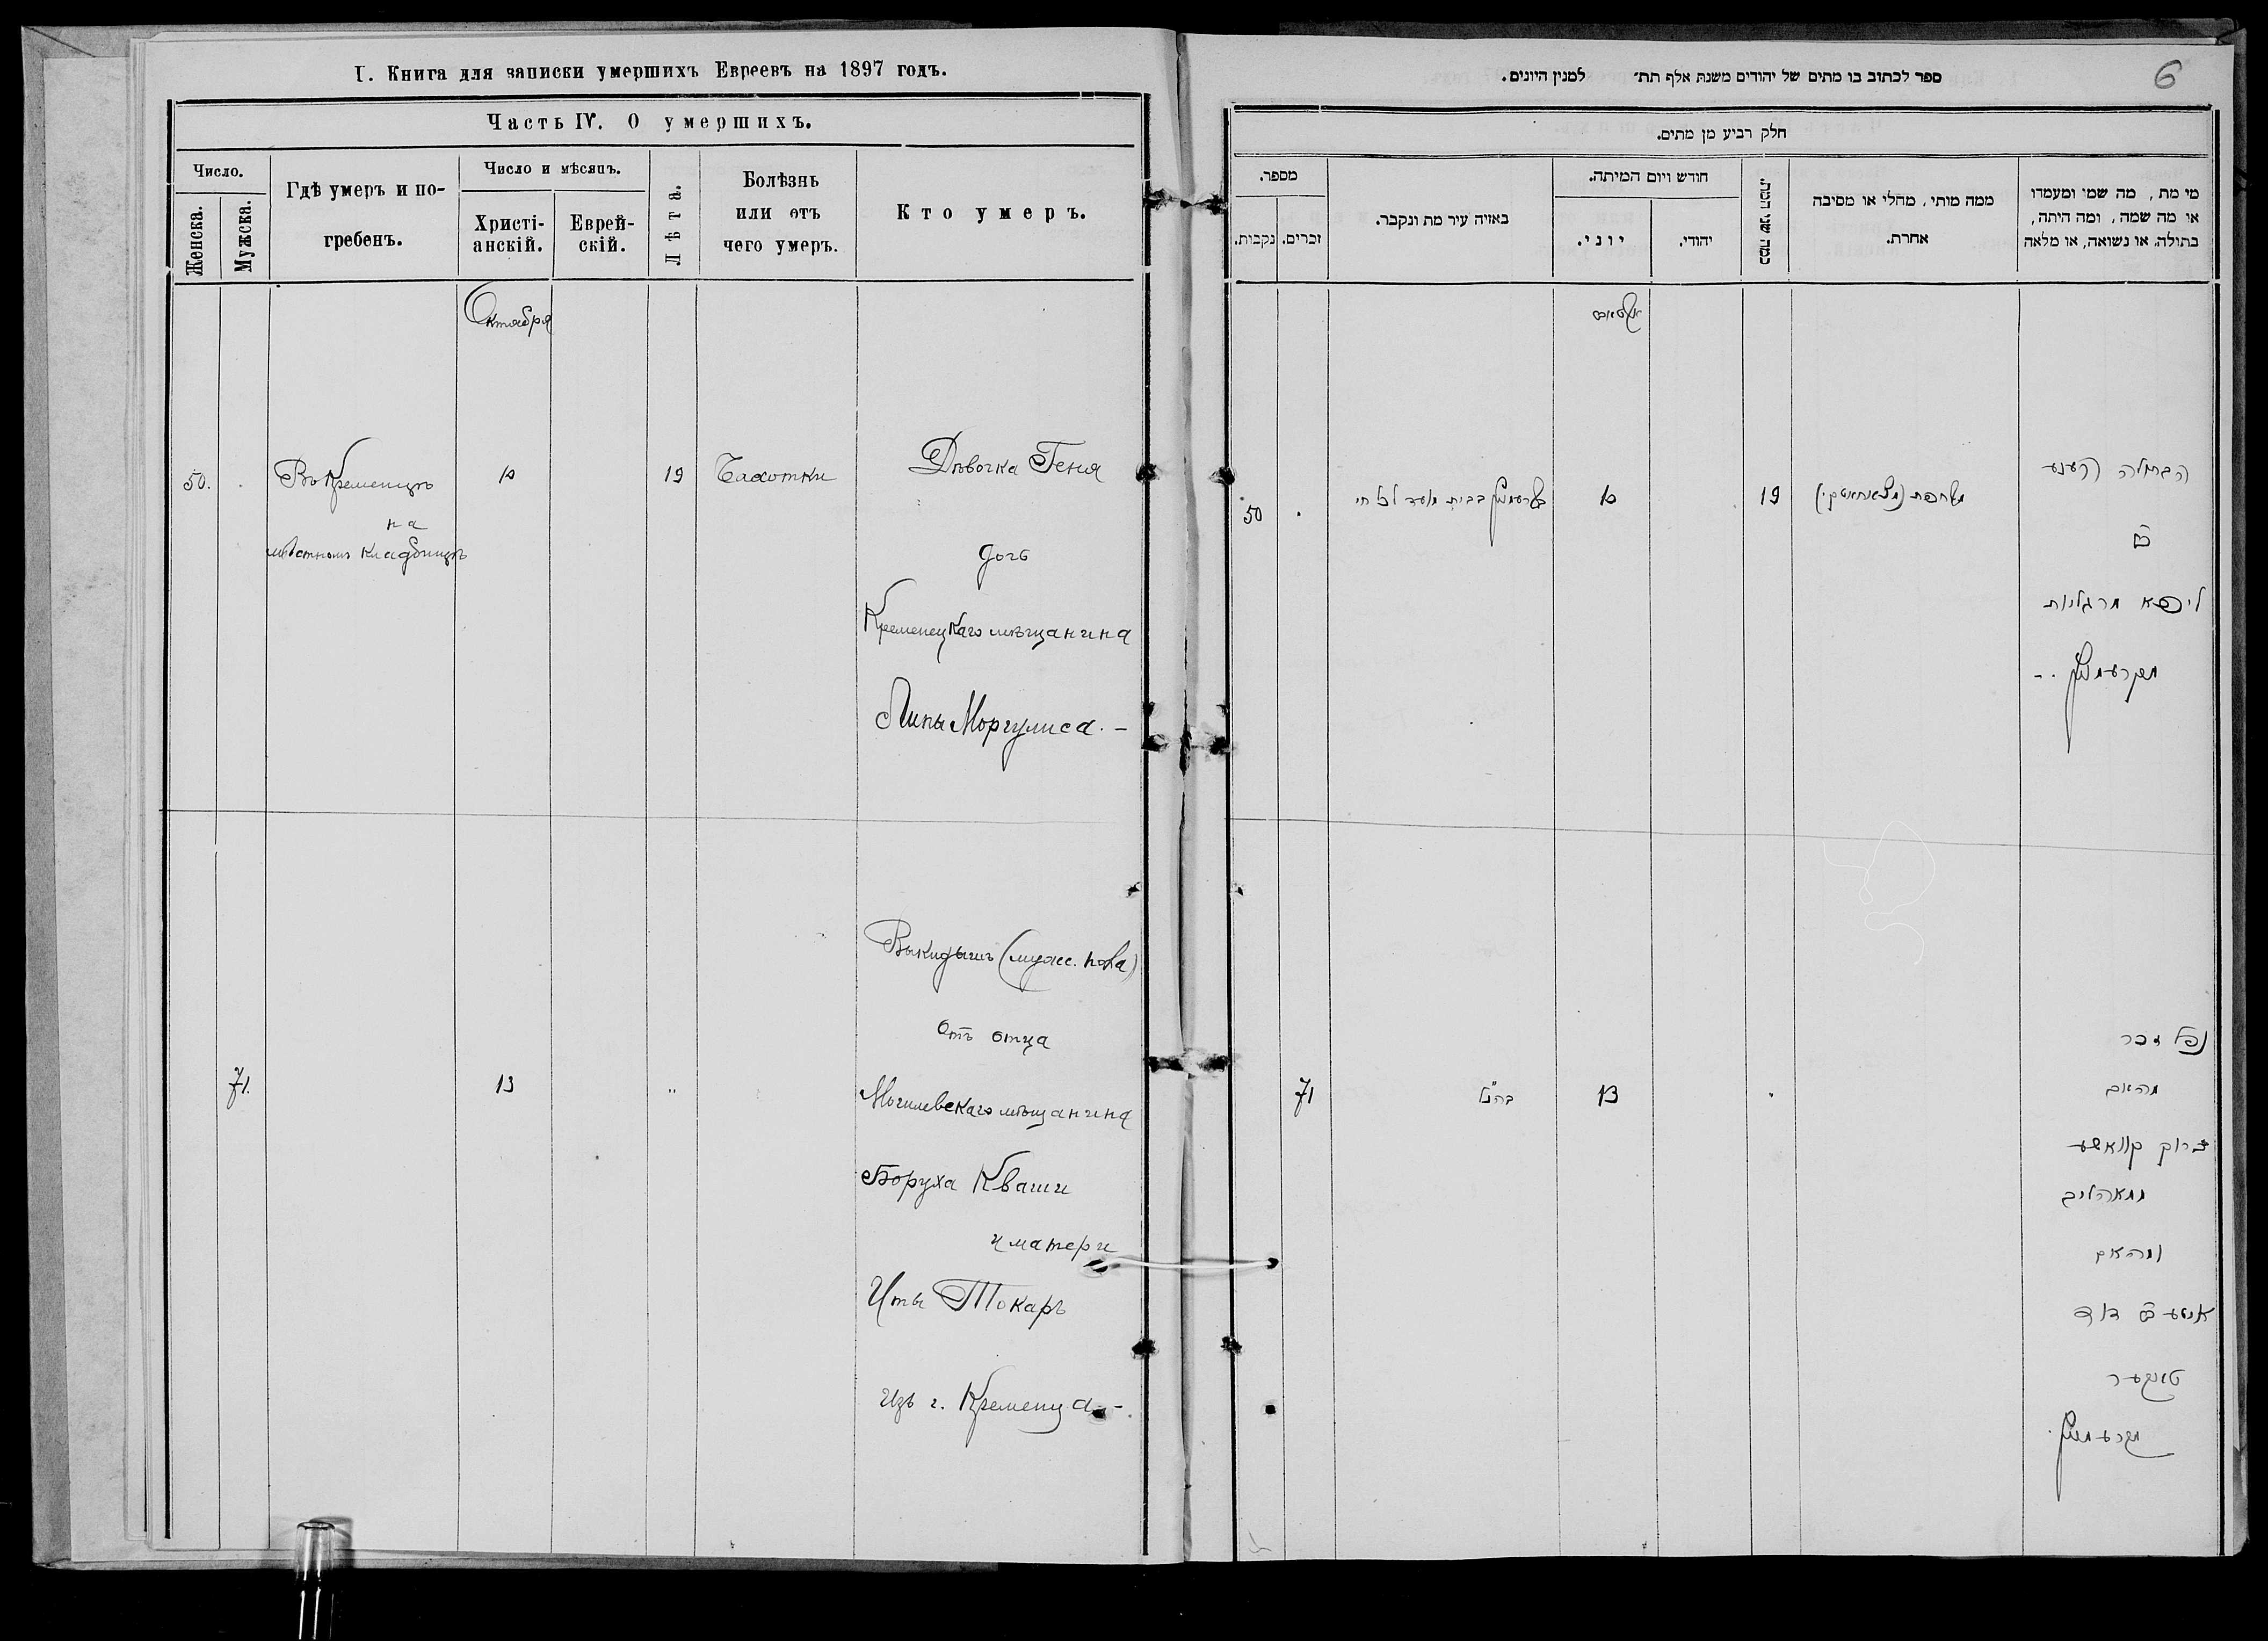 I. Книга для записки умершихъ Евреевъ на 1897 годъ.
Часть IV. О умершихъ.
Число.
Женска.
Мужска.
Гдѣ умеръ и по-
гребенъ.
Число и мѣсяцъ.
Христі-
анскій.
Еврей-
скій.
Лѣта.
Болѣзнь
или отъ
чего умеръ.
Кто умеръ.
Октября
50.
Въ Кременцѣ
на
мѣстномъ кладбищѣ
10
19
Чахотки
Дѣвочка Геня
дочь
Кременецкаго мѣщанина
Липы Моргулиса. –
71.
13
"
Выкидышъ (мужс. пола)
отъ отца
Могилевскаго мѣщанина
Боруха Кваши
и матери
Иты Токаръ
изъ г. Кременца. –
6
ספר לכתוב בו מתים של יהודים משנת אלף תת״ למנין היונים.
חלק רביע מן מתים.
מספר.
נקבות.
זכרים.
באיזה עיר מת ונקבר.
חודש ויום המיתה.
יוני.
יהודי.
כמה שני חייו.
ממה מותו, מחלי או מסיבה
אחרת.
מי מת, מה שמו ומעמדו
או מה שמה, ומה היתה,
בתולה, או נשואה, או מלאה
50
בבית מועד לכל חי
10
19
הבתולה הענע
ליפא מרגליות
מקרעמניץ
71
כנ"ל
13
נפל זכר
מהאב
ברוך קוואשע
ומהאם
דוד
טוקער
מקרעמניץ